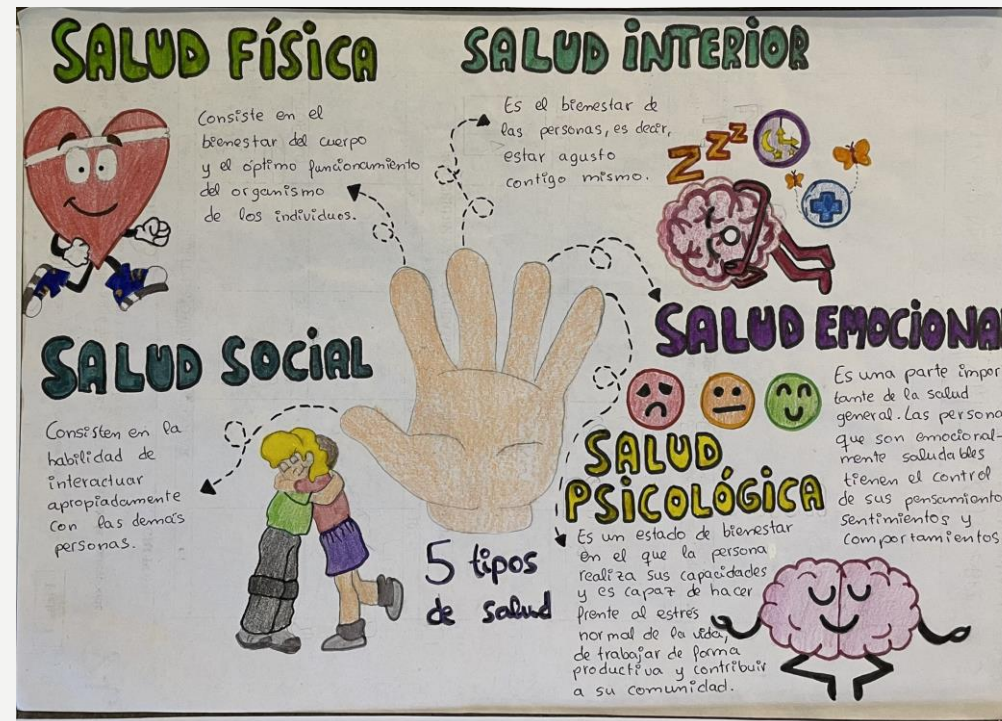 SALUD FÍSICA
Consiste en el
bienestar del cuerpo
y el óptimo funcionamiento
del organismo
de los individuos.
SALUD INTERIOR
Es el bienestar de
las personas, es decir,
estar agusto
contigo mismo.
ZZZ
SALUD SOCIAL
Consisten en la
habilidad de
interactuar
apropiadamente
con las demás
personas.
5 tipos
de salud
SALUD EMOCIONA
Es una parte impor
tante de la salud
general. Las persona
que son emocional-
mente saludables
tienen el control
de sus pensamiento
sentimientos y
comportamientos
SALUD
PSICOLÓGICA
Es un estado de bienestar
en el que la persona
realiza sus capacidades
y es capaz de hacer
frente al estrés
normal de la vida,
de trabajar de forma
productiva y contribuir
a su comunidad.